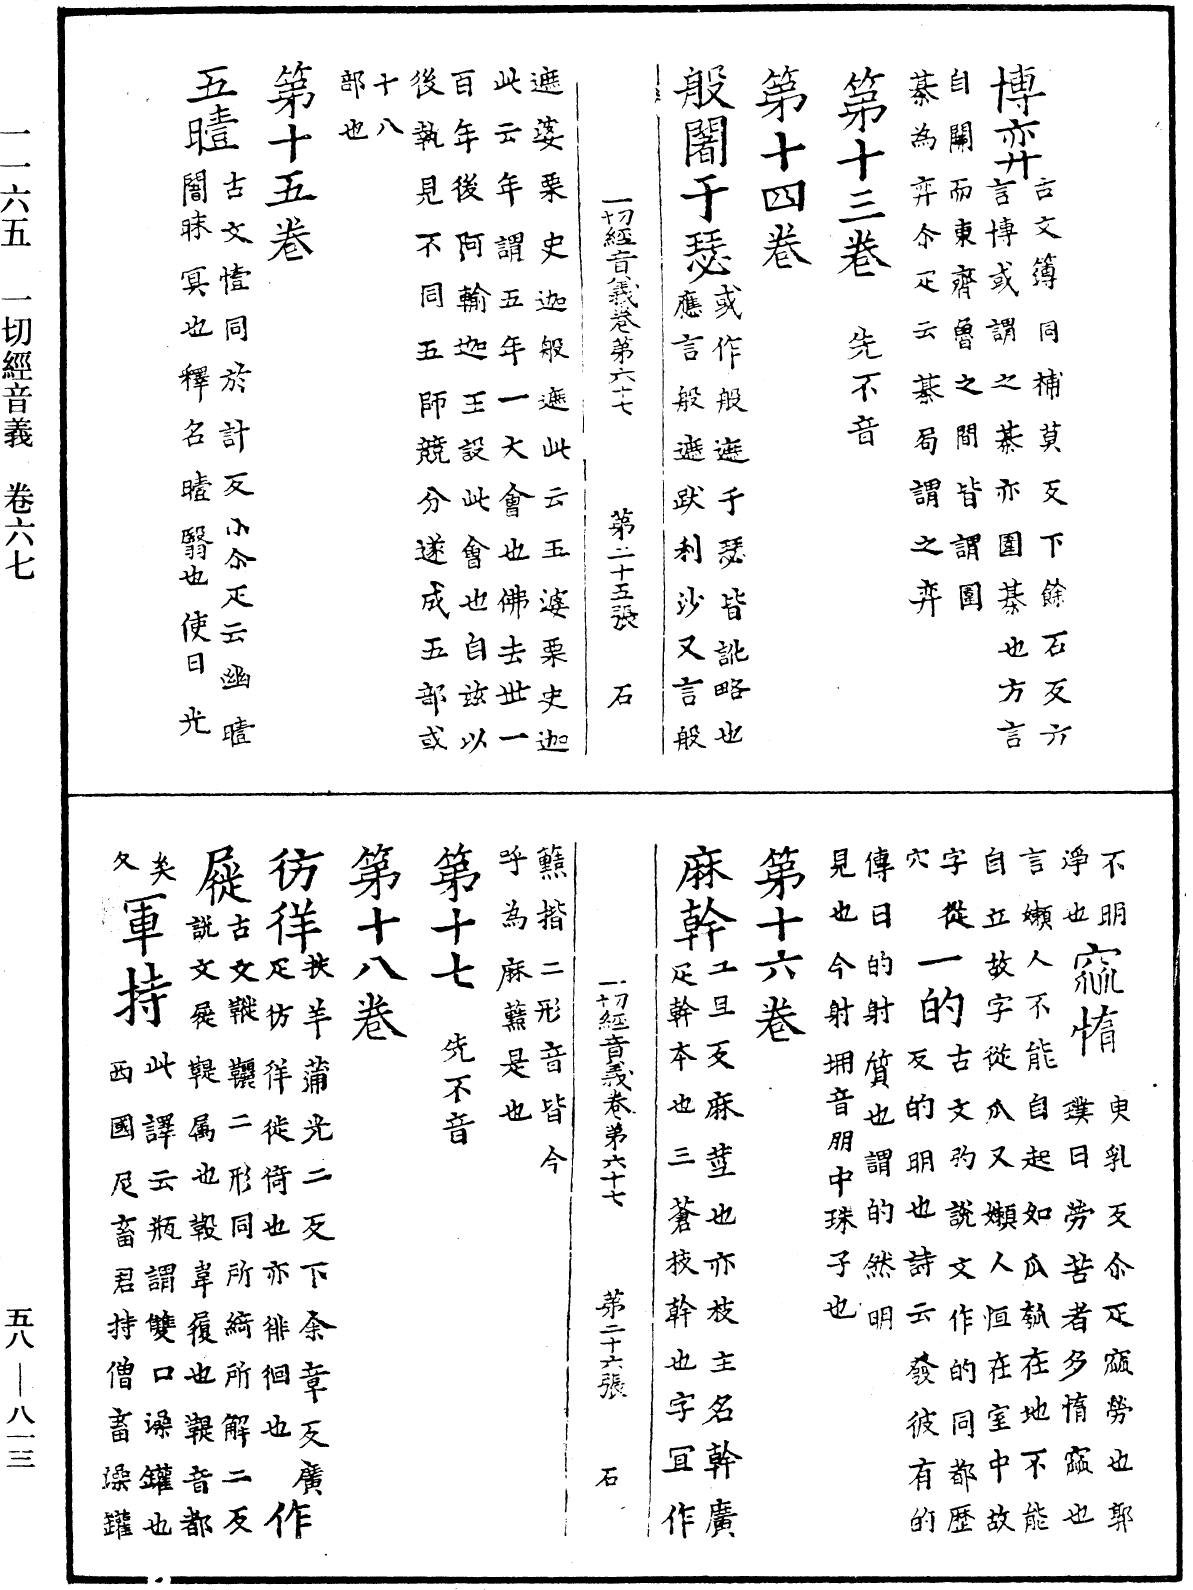 博弈古文簙同補莫反下餘石反方
言博或謂之棊亦圍棊也方言
自關而東齊魯之間皆謂圍
棊為弈尒疋云棊局謂之弈
第十三卷 先不音
第十四卷
般闍于瑟或作般遮于瑟皆訛略也
應言般遮跋利沙又言般
一切經音義卷第六十七 第二十五張 石
遮婆栗史迦般遮此云五婆栗史迦
此云年謂五年一大會也佛去世一
百年後阿輸迦王設此會也自兹以
後執見不同五師競分遂成五部或
十八
部也
第十五卷
五曀古文㙪同於計反小尒疋云幽曀
闇昧冥也釋名曀翳也使日光
不明
淨也窳惰臾乳反尒疋窳勞也郭
璞曰勞苦者多惰窳也
言嬾人不能自起如瓜瓠在地不能
自立故字從瓜又嬾人恒在室中故
字從一的古文旳說文作的同都歷
穴反的明也詩云發彼有的
傳曰的射質也謂的然明
見也今射堋音朋中珠子也
第十六卷
麻幹工旦反麻莖也亦枝主名幹廣
疋幹本也三蒼枝幹也字冝作
一切經音義卷第六十七 第二十六張 石
䕸揩二形音皆今
呼為麻䕸是也
第十七 先不音
第十八卷
彷徉扶羊蒲光二反下余章反廣作
疋彷徉徙倚也亦徘徊也
屣古文鞾䩺二形同所綺所解二反
說文屣鞮属也韍韋履也鞮音都
奚軍持此譯云瓶謂雙口澡罐也
久西國尼畜君持僧畜澡罐
一一六五 一切經音義 卷六七 五八—八一三